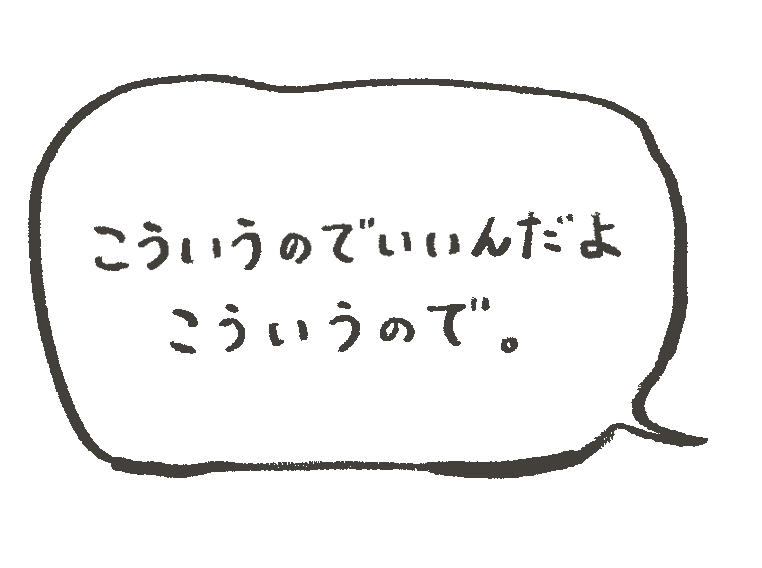 こういうのでいいんだよ
こういうので。